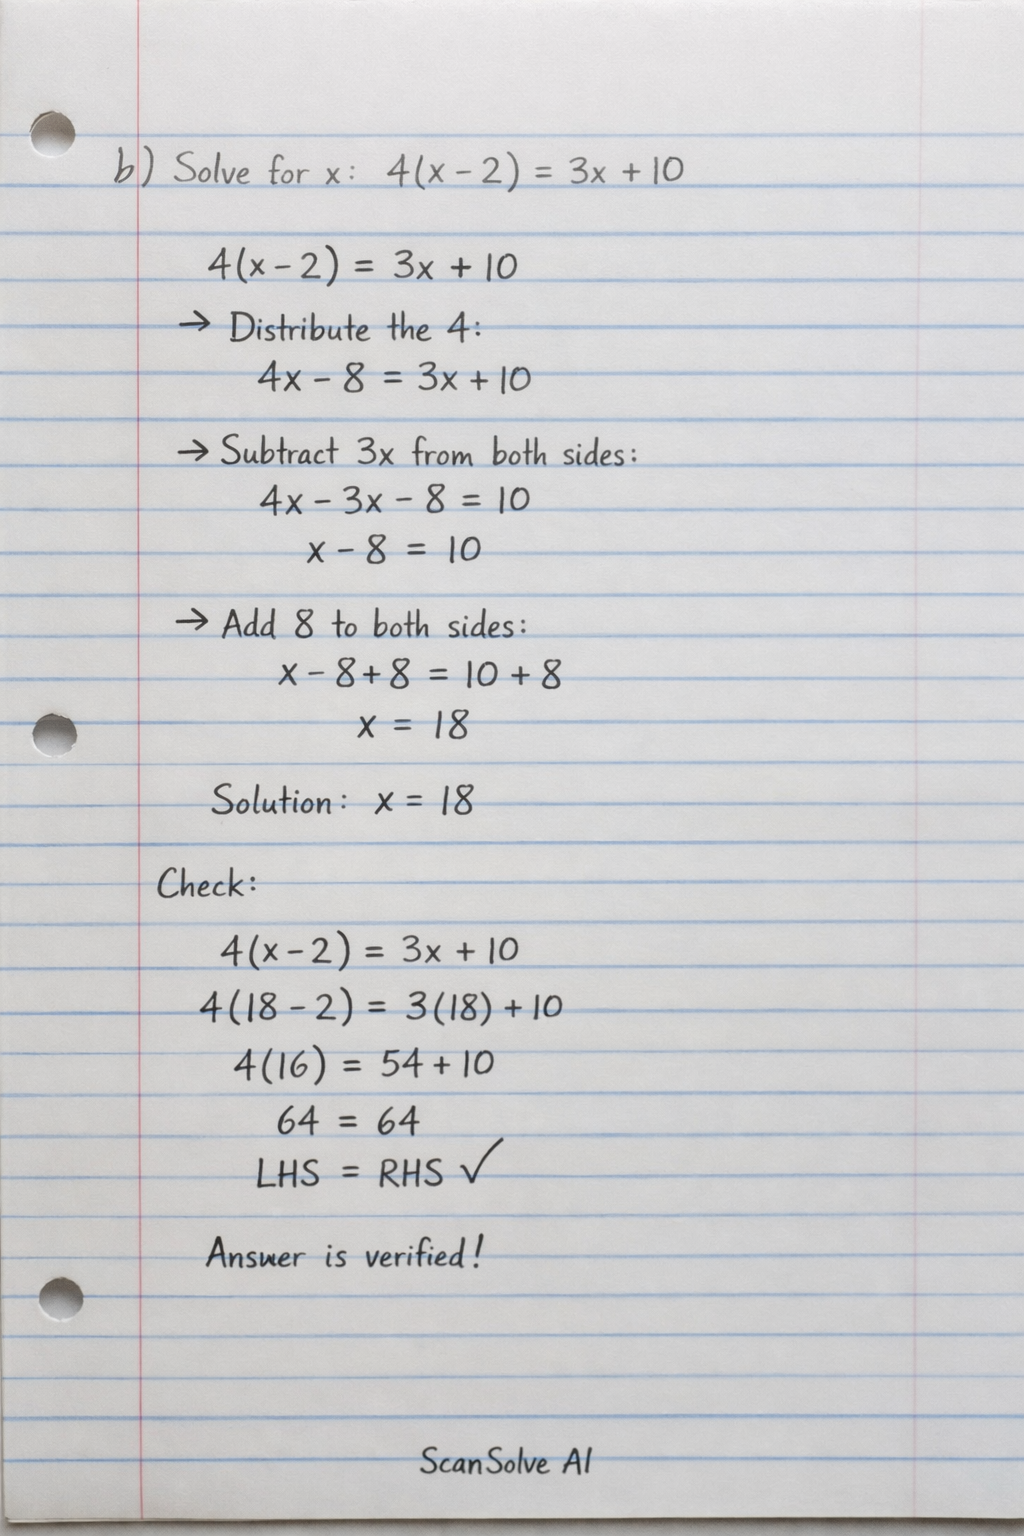 b) Solve for x: 4(x - 2) = 3x + 10
4(x - 2) = 3x + 10
→ Distribute the 4:
4x - 8 = 3x + 10
→ Subtract 3x from both sides:
4x - 3x - 8 = 10
x - 8 = 10
→ Add 8 to both sides:
x - 8 + 8 = 10 + 8
x = 18
Solution: x = 18
Check:
4(x - 2) = 3x + 10
4(18 - 2) = 3(18) + 10
4(16) = 54 + 10
64 = 64
LHS = RHS ✓
Answer is verified!
ScanSolve AI